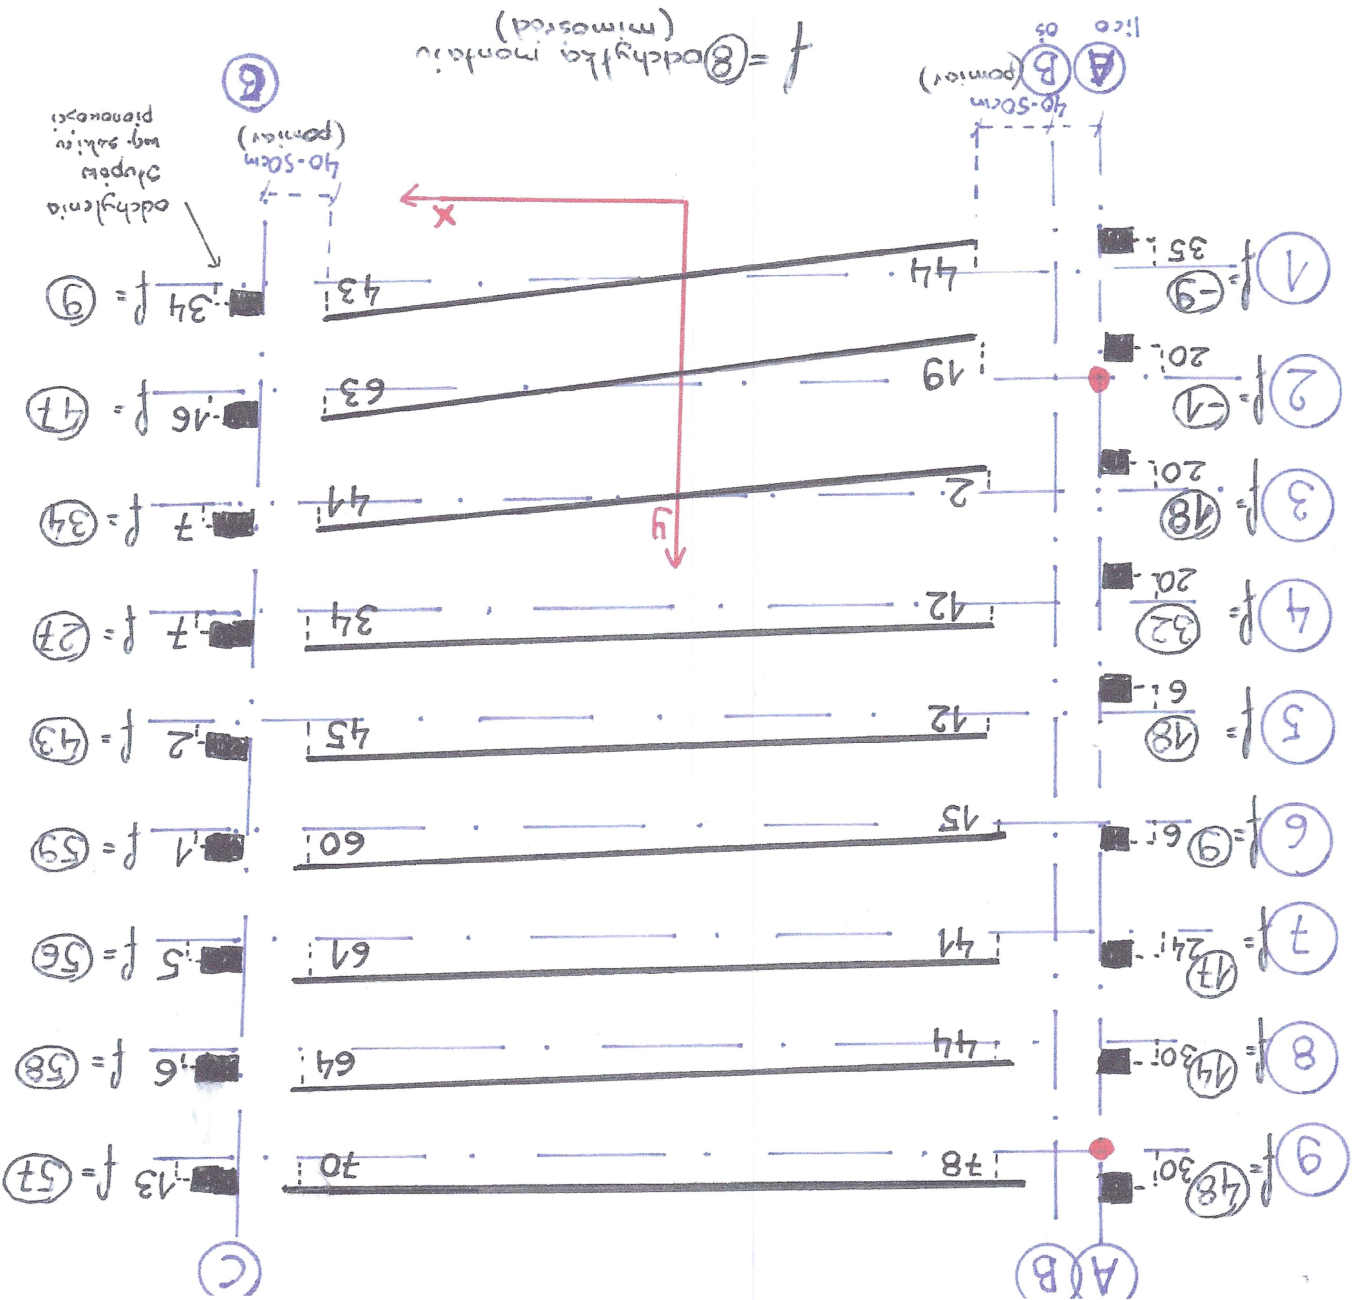 A B C
9 f= 48 30 78 70 13 f= 57
8 f= 14 30 44 64 6 f= 58
7 f= 17 24 41 61 5 f= 56
6 f= 9 6 15 60 1 f= 59
5 f= 18 6 12 45 2 f= 43
4 f= 32 20 12 34 7 f= 27
y
3 f= 18 20 2 41 7 f= 34
2 f= -1 20 19 63 16 f= 47
1 f= -9 35 44 43 34 f= 9
x
odchylenia
słupów
wg. szkicu
pionowości
40-50cm
(pomiar)
40-50cm
(pomiar)
A B
lico oś
f = 8 odchyłka montażu
(mimośród)